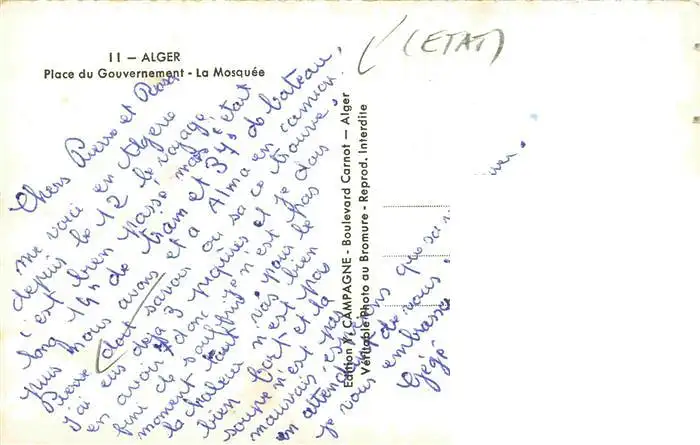 11 — ALGER
Place du Gouvernement - La Mosquée
(ETAT)
Edition X. CAMPAGNE - Boulevard Carnot — Alger
Véritable Photo au Bromure - Reprod. Interdite
Chers Pierre et Rosa
me voici en Algérie
depuis le 12 le voyage
c'est bien passé mais c'était
long 14h de train et 34h de bateau,
puis nous avons été a Alma en camion.
Pierre doit savoir ou sa ce trouve.
j'ai eus déjà 3 piqûres et je dois
en avoir donc je n'est pas
fini de souffrir
moment tout vas bien
la chaleur n'est pas
bien fort et la
soupe n'est pas
mauvais
en attendant que sa
de vous
je vous embrasse
Gégé